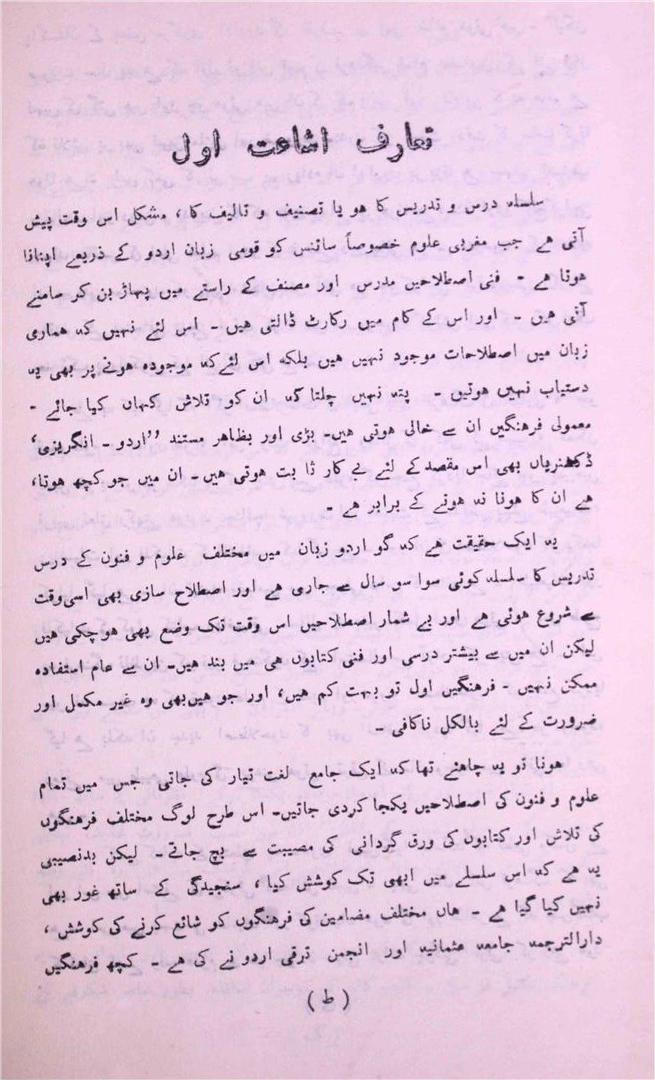 تعارف اشاعت اول
سلسلہ درس و تدریس کا ہو یا تصنیف و تالیف کا، مشکل اس وقت پیش
آتی ہے جب مغربی علوم خصوصاً سائنس کو قومی زبان اردو کے ذریعے اپنانا
ہوتا ہے - فنی اصطلاحیں مدرس اور مصنف کے راستے میں پہاڑ بن کر سامنے
آتی ہیں - اور اس کے کام میں رکارٹ ڈالتی ہیں - اس لئے نہیں کہ ہماری
زبان میں اصطلاحات موجود نہیں ہیں بلکہ اس لئے کہ موجودہ ہونے پر بھی یہ
دستیاب نہیں ہوتیں - پتہ نہیں چلتا کہ ان کو تلاش کہاں کیا جائے -
معمولی فرہنگیں ان سے خالی ہوتی ہیں- بڑی اور بظاہر مستند ”اردو - انگریزی‘
ڈکشنریاں بھی اس مقصد کے لئے بے کار ثا بت ہوتی ہیں- ان میں جو کچھ ہوتا،
ہے ان کا ہونا نہ ہونے کے برابر ہے -
یہ ایک حقیقت ہے کہ گو اردو زبان میں مختلف علوم و فنون کے درس
تدریس کا سلسلہ کوئی سوا سو سال سے جاری ہے اور اصطلاح سازی بھی اسی وقت
سے شروع ہوئی ہے اور بے شمار اصطلاحیں اس وقت تک وضع بھی ہو چکی ہیں
لیکن ان میں سے بیشتر درسی اور فنی کتابوں ہی میں بند ہیں- ان سے عام استفادہ
ممکن نہیں - فرہنگیں اول تو بہت کم ہیں، اور جو ہیں بھی وہ غیر مکمل اور
ضرورت کے لئے بالکل ناکافی -
ہونا تو یہ چاہئے تھا کہ ایک جامع لغت تیار کی جاتی جس میں تمام
علوم و فنون کی اصطلاحیں یکجا کردی جاتیں- اس طرح لوگ مختلف فرہنگوں
کی تلاش اور کتابوں کی ورق گردانی کی مصیبت سے بچ جاتے - لیکن بدنصیبی
یہ ہے کہ اس سلسلے میں ابھی تک کوشش کیا، سنجیدگی کے ساتھ غور بھی
نہیں کیا گیا ہے - ہاں مختلف مضامین کی فرہنگوں کو شائع کرنے کی کوشش ،
دارالترجمہ جامعہ عثمانیہ اور انجمن ترقی اردو نے کی ہے - کچھ فرہنگیں
( ط )